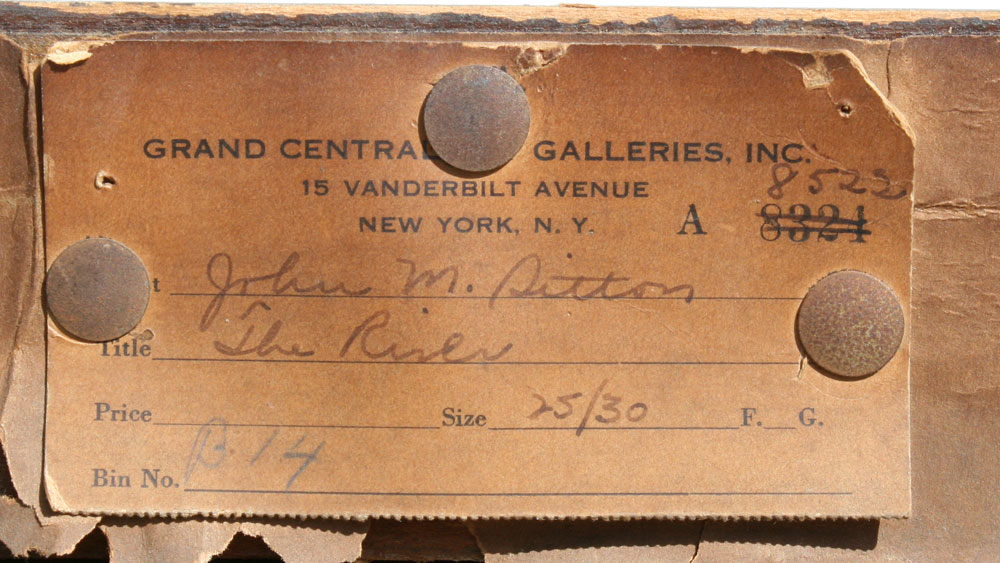 GRAND CENTRAL GALLERIES, INC.
15 VANDERBILT AVENUE
NEW YORK, N. Y. A 8321
8522
t John M. Sitton
Title The River
Price Size 25/30 F. G.
Bin No. B-14